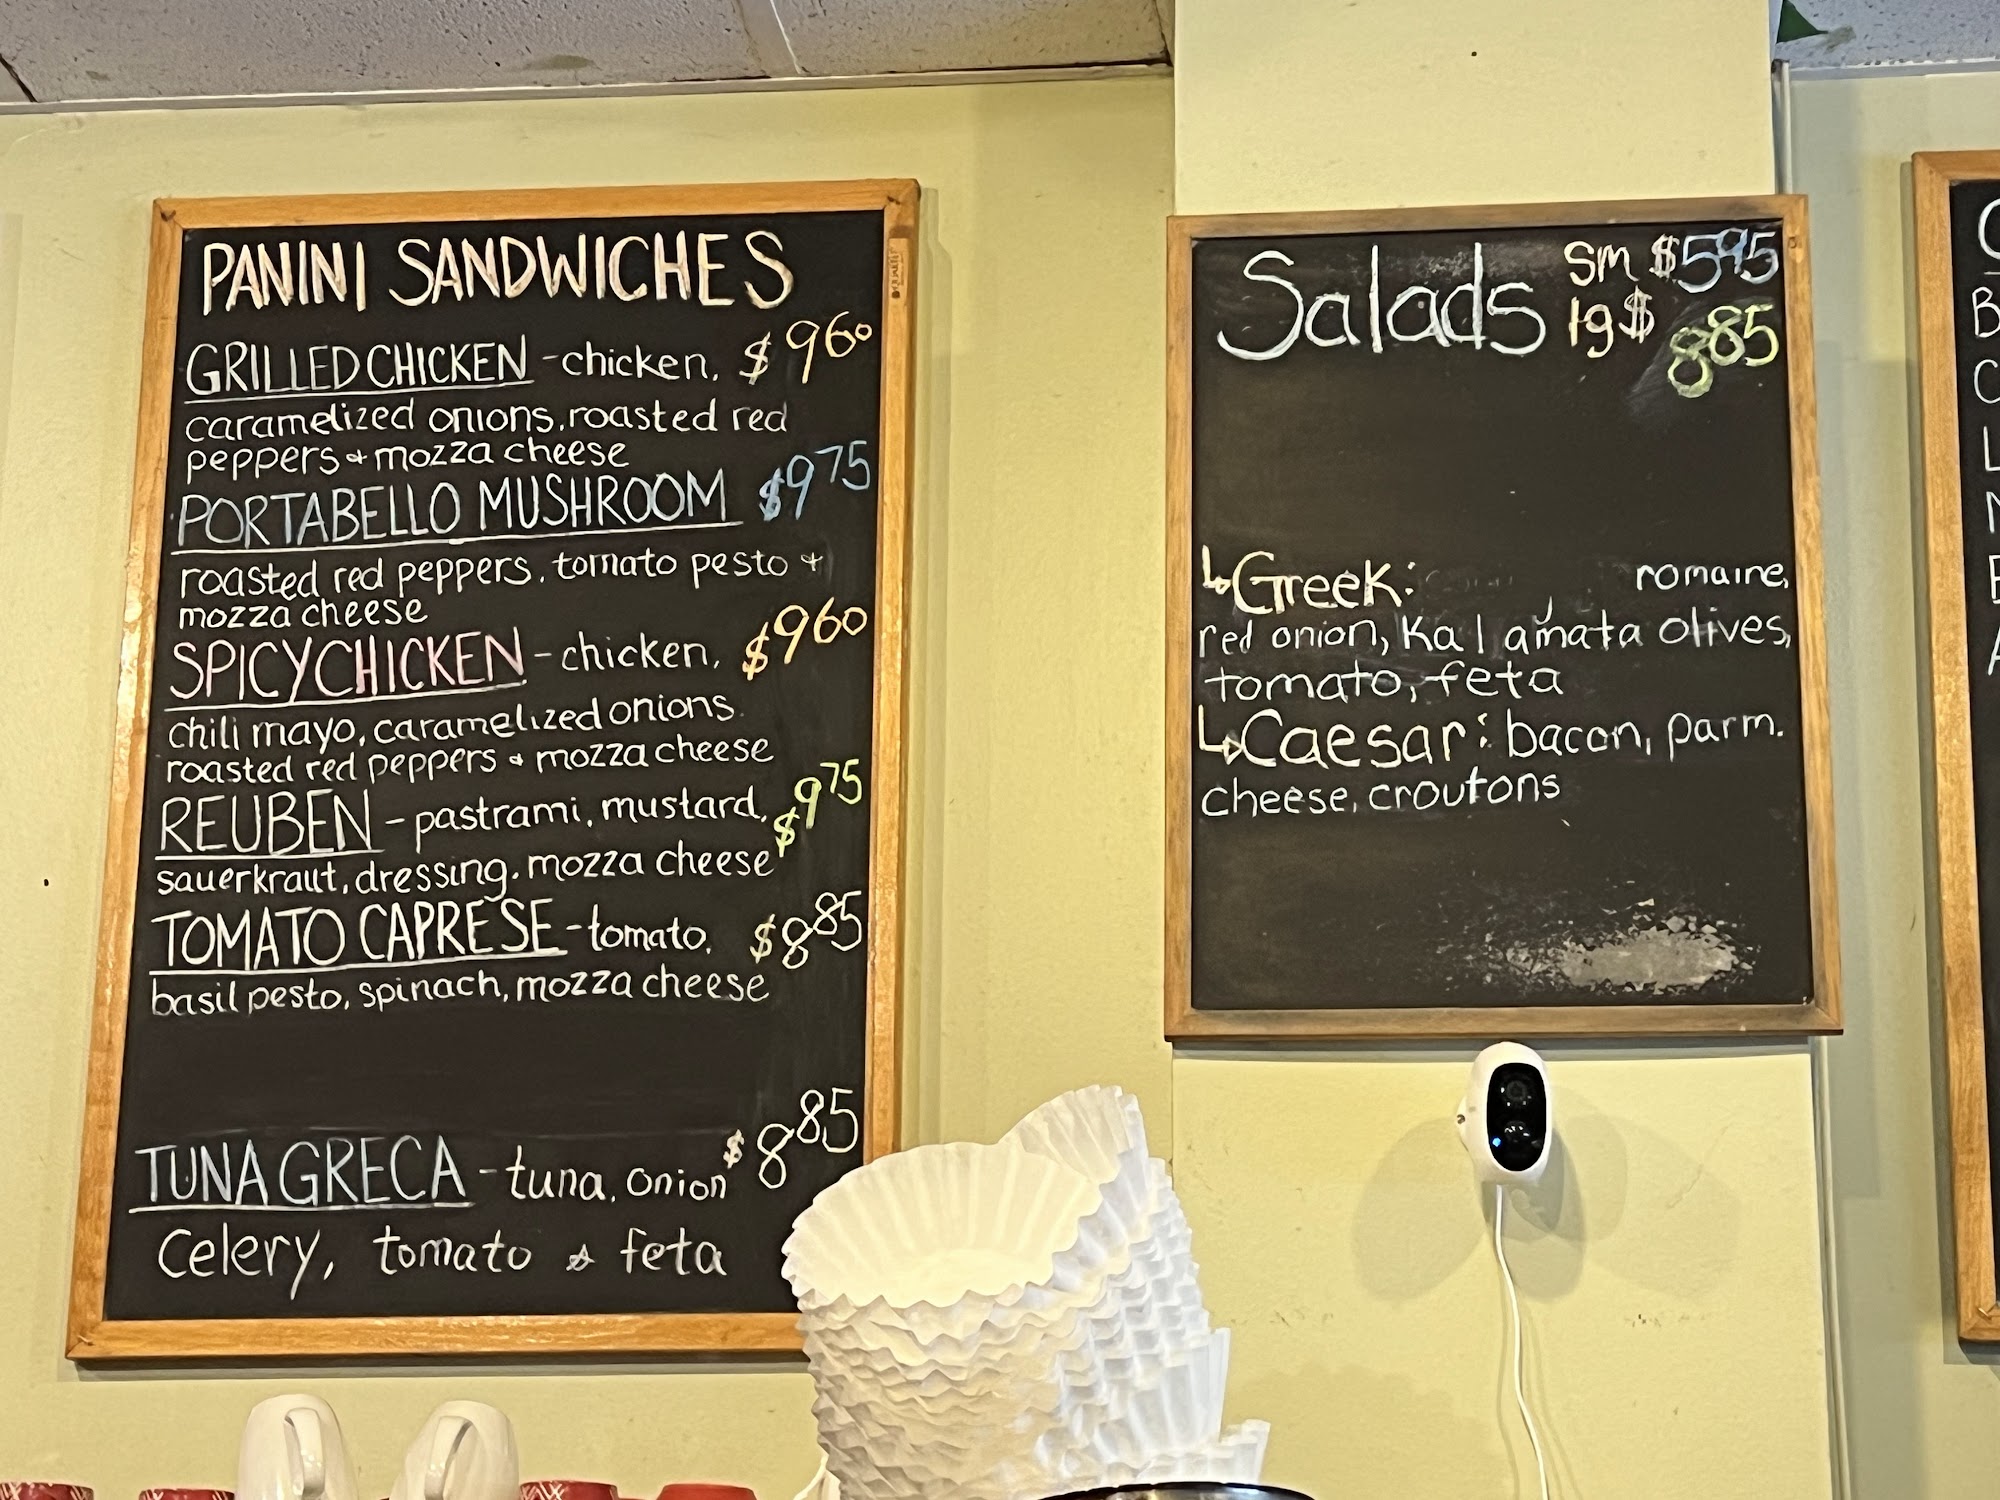 PANINI SANDWICHES
GRILLED CHICKEN - chicken, $9.60
caramelized onions, roasted red
peppers & mozza cheese
PORTABELLO MUSHROOM $9.75
roasted red peppers, tomato pesto &
mozza cheese
SPICY CHICKEN - chicken, $9.60
chili mayo, caramelized onions
roasted red peppers & mozza cheese
REUBEN - pastrami, mustard, $9.75
sauerkraut, dressing, mozza cheese
TOMATO CAPRESE - tomato, $8.85
basil pesto, spinach, mozza cheese
TUNA GRECA - tuna, onion $8.85
Celery, tomato & feta
Salads sm $5.95
lg $8.85
↳Greek: romaine,
red onion, Kalamata olives,
tomato, feta
↳Caesar: bacon, parm.
cheese, croutons